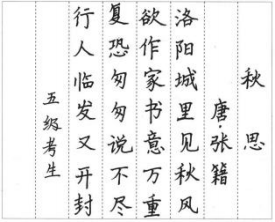 秋思
唐·张籍
洛阳城里见秋风
欲作家书意万重
复恐匆匆说不尽
行人临发又开封
五级考生